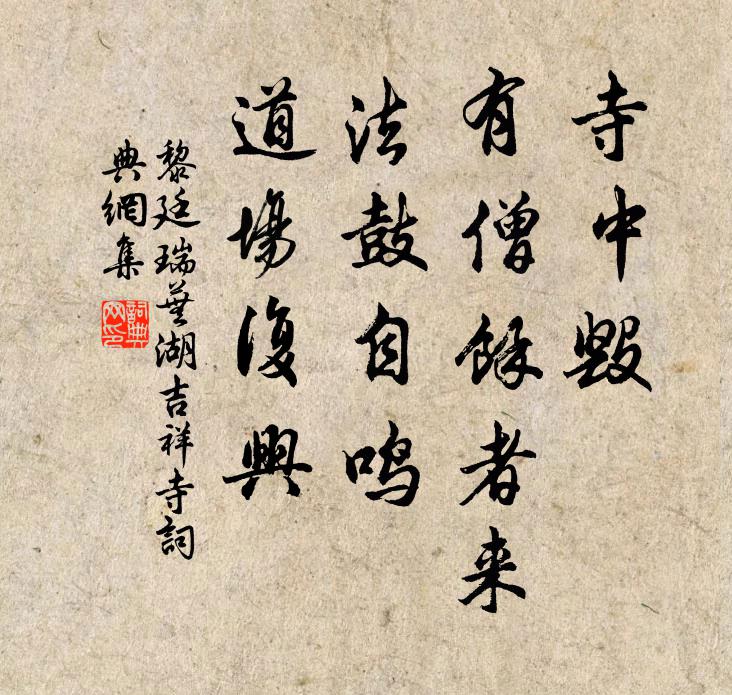 寺中毀
有僧餘者来
法鼓自鸣
道場復興
黎廷瑞蕪湖吉祥寺詞
典網集
詞典
网印